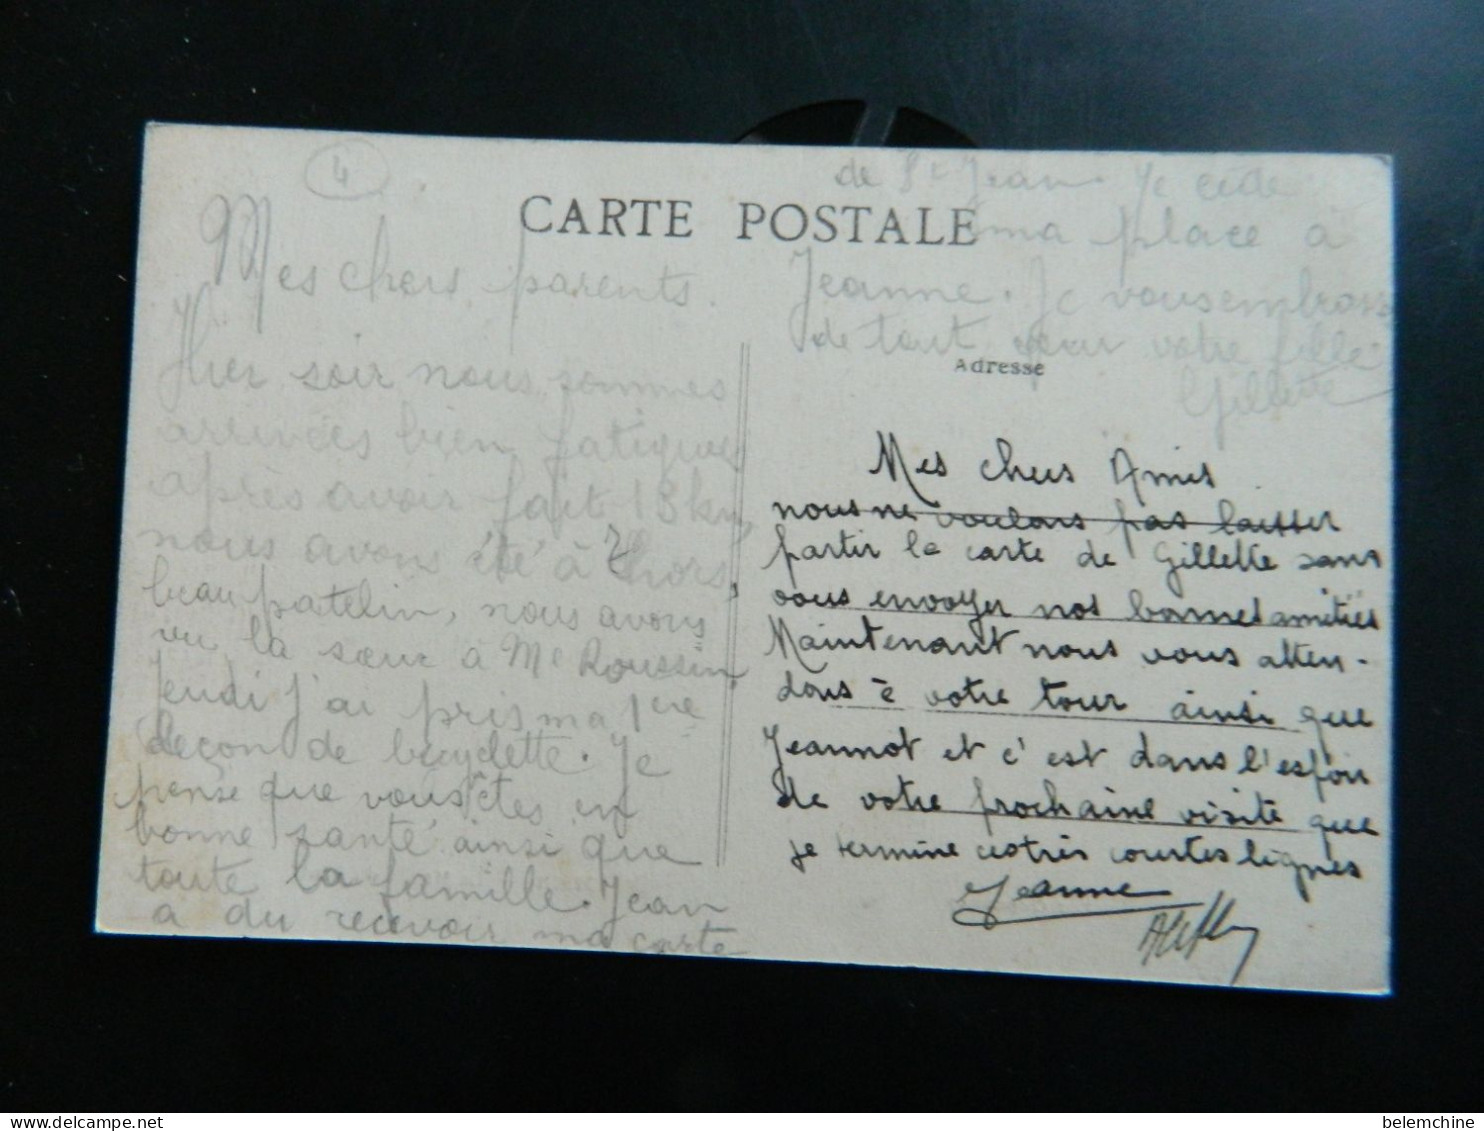 4
CARTE POSTALE
Mes chers parents.
Hier soir nous sommes
arrivées bien fatigués
après avoir fait 13 km,
nous avons été à Thors,
beau patelin, nous avons
vu la sœur à Me Roussin,
Jeudi j'ai pris ma 1ère
leçon de bicyclette. Je
pense que vous êtes en
bonne santé ainsi que
toute la famille. Jean
a du recevoir ma carte
de St Jean. Je cède
ma place à
Jeanne. Je vous embrasse
de tout cœur votre fille
Gillette
Adresse
Mes chers Amis
nous ne voulons pas laisser
partir la carte de Gillette sans
vous envoyer nos bonnes amitiés
Maintenant nous vous atten-
dons à votre tour ainsi que
Jeannot et c'est dans l'espoir
de votre prochaine visite que
je termine ces très courtes lignes
Jeanne
belemchine